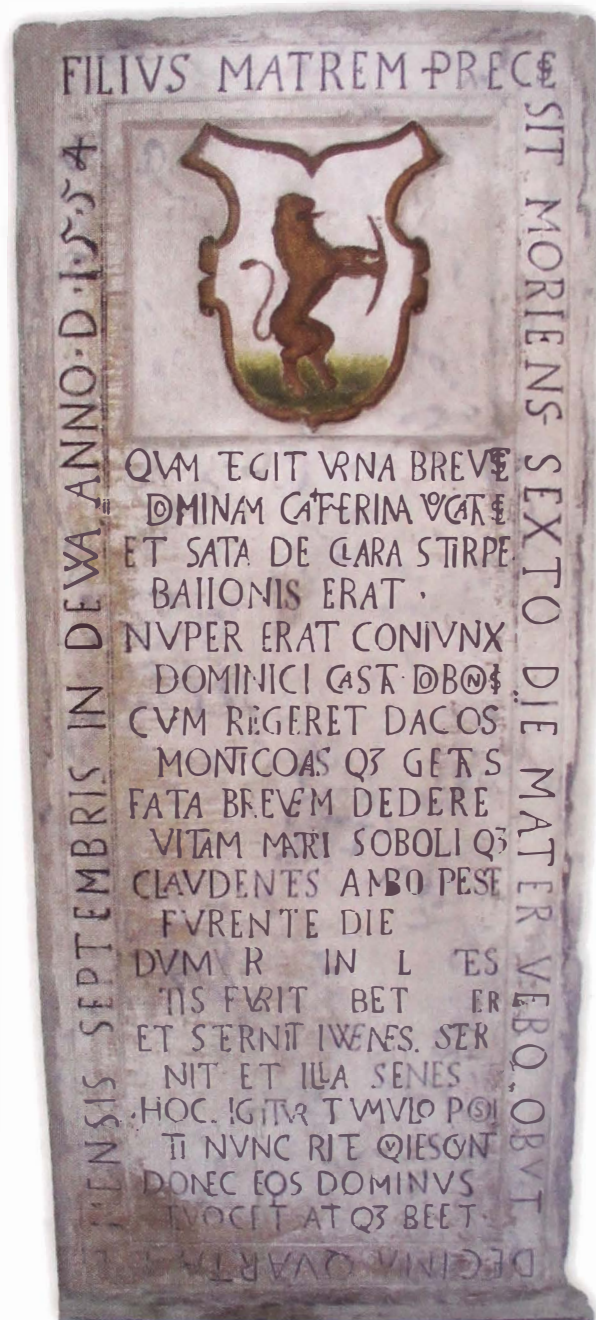 FILIVS MATREM PRECES
SIT MORIENS SEXTO DIE MATER VERO OBVT
DECIMA QVARTA
MENSIS SEPTEMBRIS IN DEWA ANNO D 1554
QVAM TEGIT VRNA BREVIS
DOMINAM CATERINA VOCATE
ET SATA DE CLARA STIRPE
BAIIONIS ERAT
NVPER ERAT CONIVNX
DOMINICI CAST
CVM REGERET DACOS
MONTICOAS Q3 GETAS
FATA BREVEM DEDERE
VITAM MATRI SOBOLI Q3
CLAVDENTES AMBO PESTE
FVRENTE DIE
DVM R IN L TES
TIS FVRIT BET ER
ET STERNIT IWENES. STER
NIT ET ILLA SENES
HOC. IGITVR TVMVLO POSI
TI NVNC RITE QVIESCVNT
DONEC EOS DOMINVS
EVOCET AT Q3 BEET